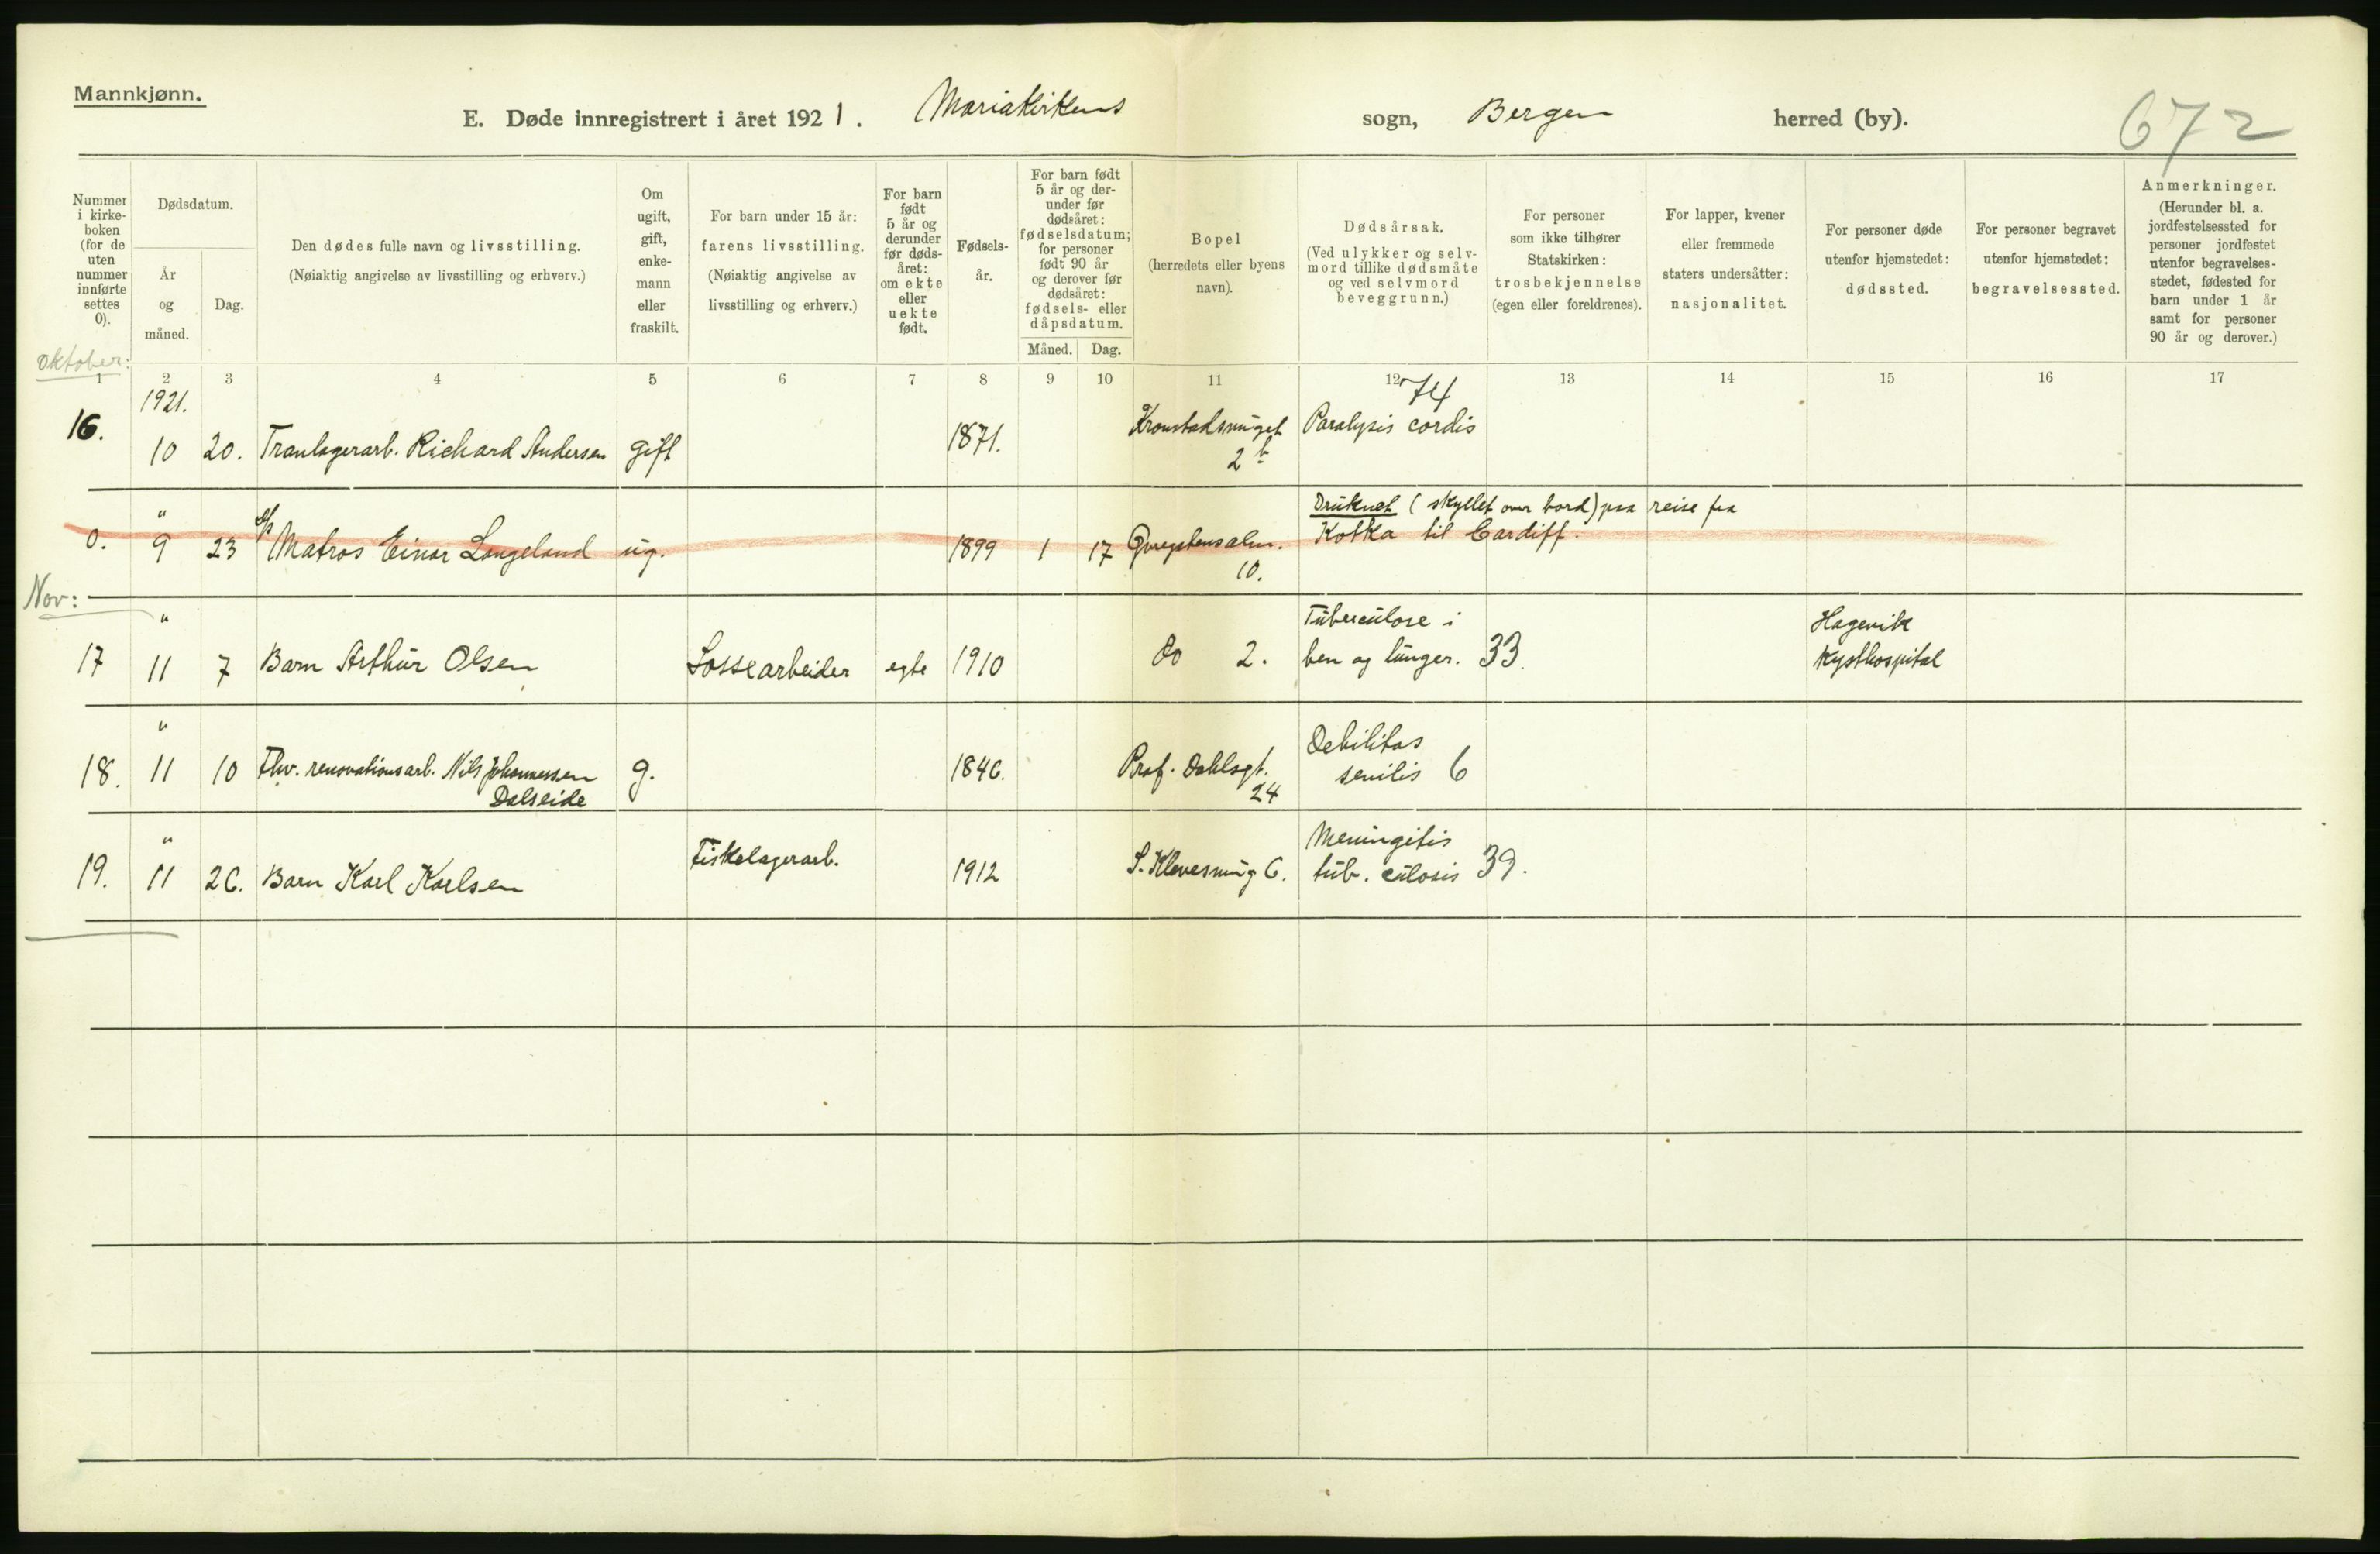 Mannkjønn.
E. Døde innregistrert i året 1921. Mariakirkens sogn, Bergen herred (by).
672
Nummer i kirkeboken (for de uten nummer innførte settes 0).
Dødsdatum.
År og måned.
Dag.
Den dødes fulle navn og livsstilling.
(Nøiaktig angivelse av livsstilling og erhverv.)
Om ugift, gift, enkemann eller fraskilt.
For barn under 15 år: farens livsstilling.
(Nøiaktig angivelse av livsstilling og erhverv.)
For barn født 5 år og derunder før dødsåret: om ekte eller uekte født.
Fødselsår.
For barn født 5 år og derunder før dødsåret: fødselsdatum; for personer født 90 år og derover før dødsåret: fødsels- eller dåpsdatum.
Måned. Dag.
Bopel
(herredets eller byens navn).
Dødsårsak.
(Ved ulykker og selvmord tillike dødsmåte og ved selvmord beveggrunn.)
For personer som ikke tilhører Statskirken: trosbekjennelse (egen eller foreldrenes).
For lapper, kvener eller fremmede staters undersåtter: nasjonalitet.
For personer døde utenfor hjemstedet: dødssted.
For personer begravet utenfor hjemstedet: begravelsessted.
Anmerkninger.
(Herunder bl. a. jordfestelsessted for personer jordfestet utenfor begravelsesstedet, fødested for barn under 1 år samt for personer 90 år og derover.)
oktober:
1 2 3 4 5 6 7 8 9 10 11 12 13 14 15 16 17
1921.
16. 10 20. Tranlagerarb. Richard Andersen gift 1871. Kronstadsmuget 2b Paralysis cordis 74
0. " 9 23 Matros Einar Langeland ug. 1899 1 17 10. Druknet (skyllet over bord) paa reise fra
Kotka til Cardiff.
Nov:
17 " 11 7 Barn Arthur Olsen Lossearbeider egte 1910 do 2. Tuberculose i
ben og lunger. 33. Hagevik
Kysthospital
18. " 11 10 Fhv. renovationsarb. Nils Johannessen
Dalseide g. 1846. Prof. Dahlsgt. 24 Debilitas
senilis 6
19. " 11 26. Barn Karl Karlsen Fiskelagerarb. 1912 S. Klevesmug 6. Meningitis
tub. culosis 39.